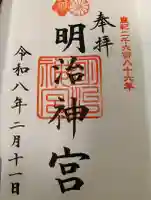 皇紀二千六百八十六年
奉拝
明治神宮
令和八年二月十一日